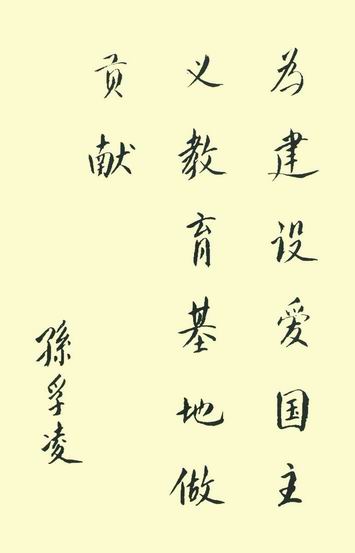 为建设爱国主
义教育基地做
贡献
孫孚凌